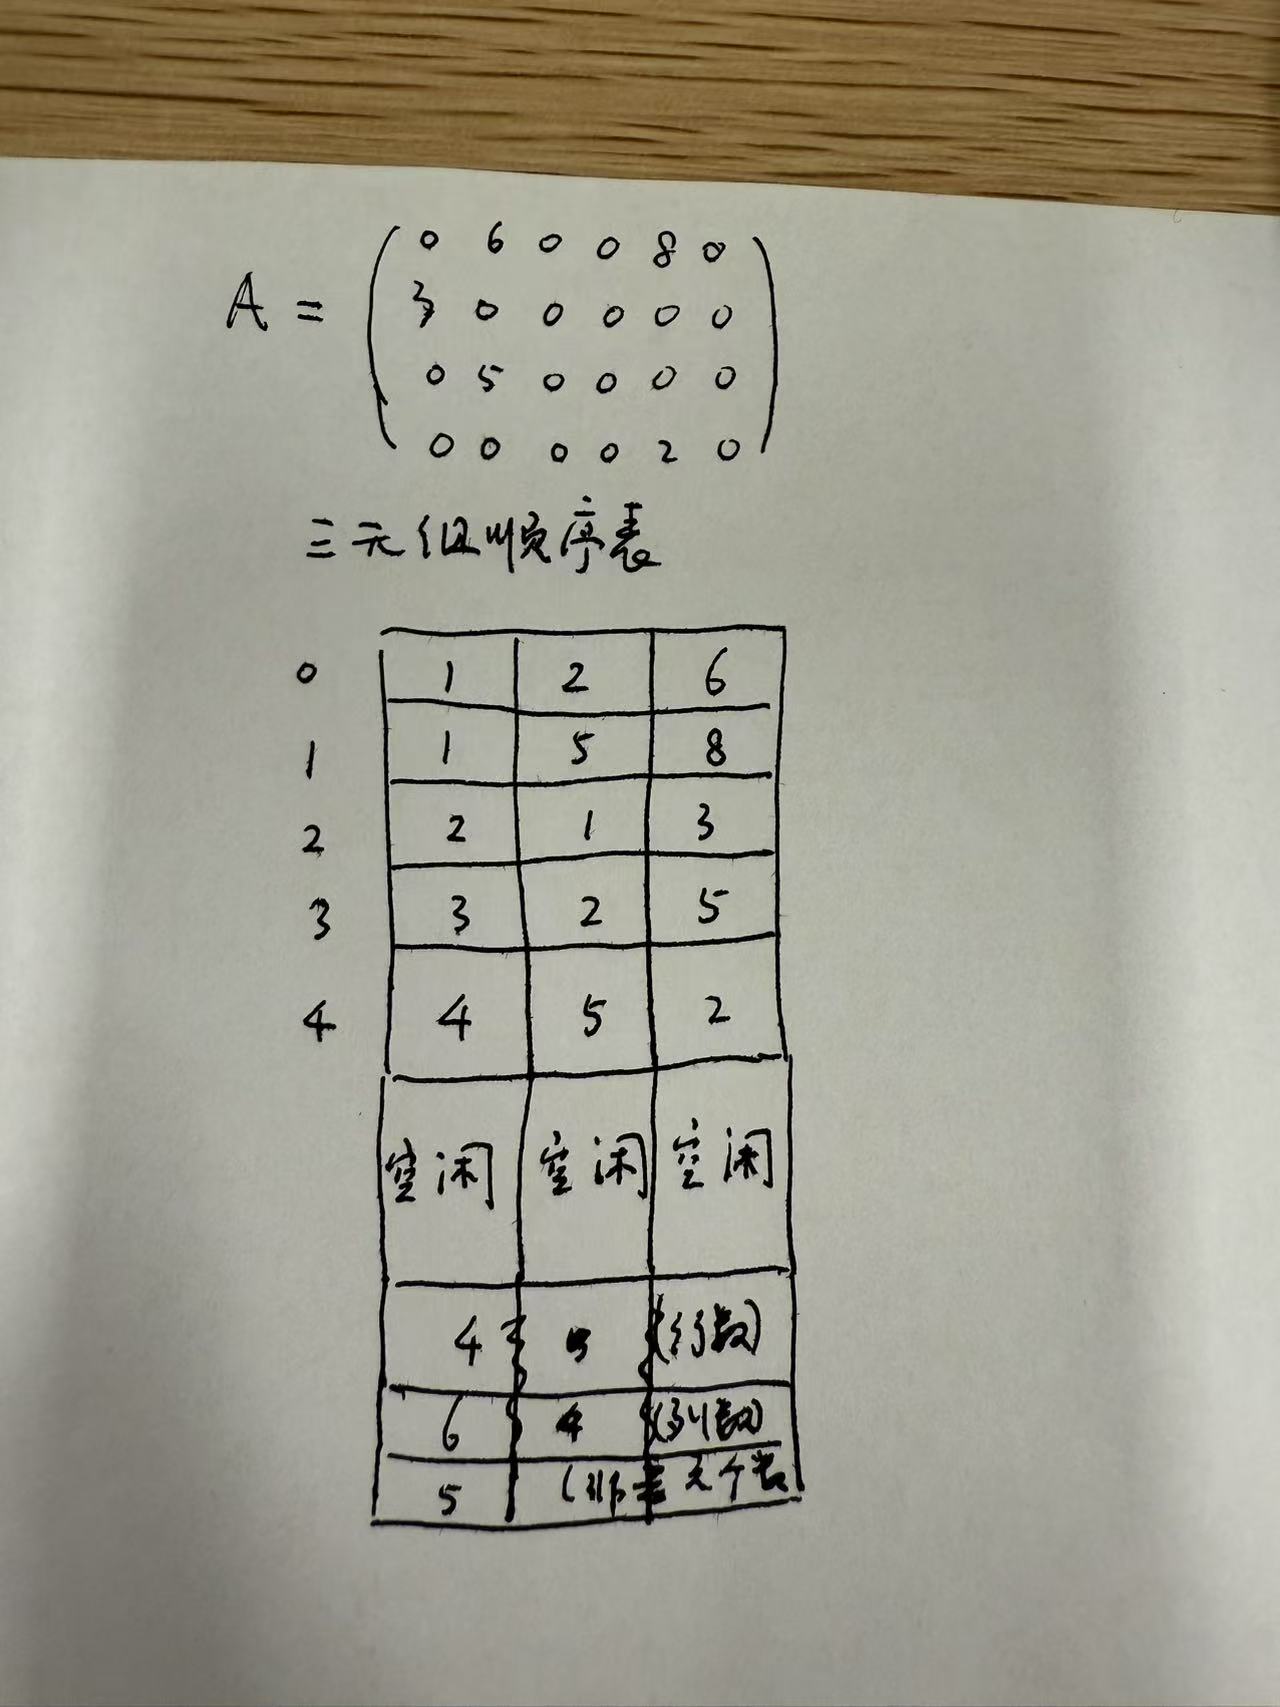 0 6 0 0 8 0
A = 3 0 0 0 0 0
0 5 0 0 0 0
0 0 0 0 2 0
三元组顺序表
0 1 2 6
1 1 5 8
2 2 1 3
3 3 2 5
4 4 5 2
空闲 空闲 空闲
4 (行数)
6 4 (列数)
5 (非零元个数